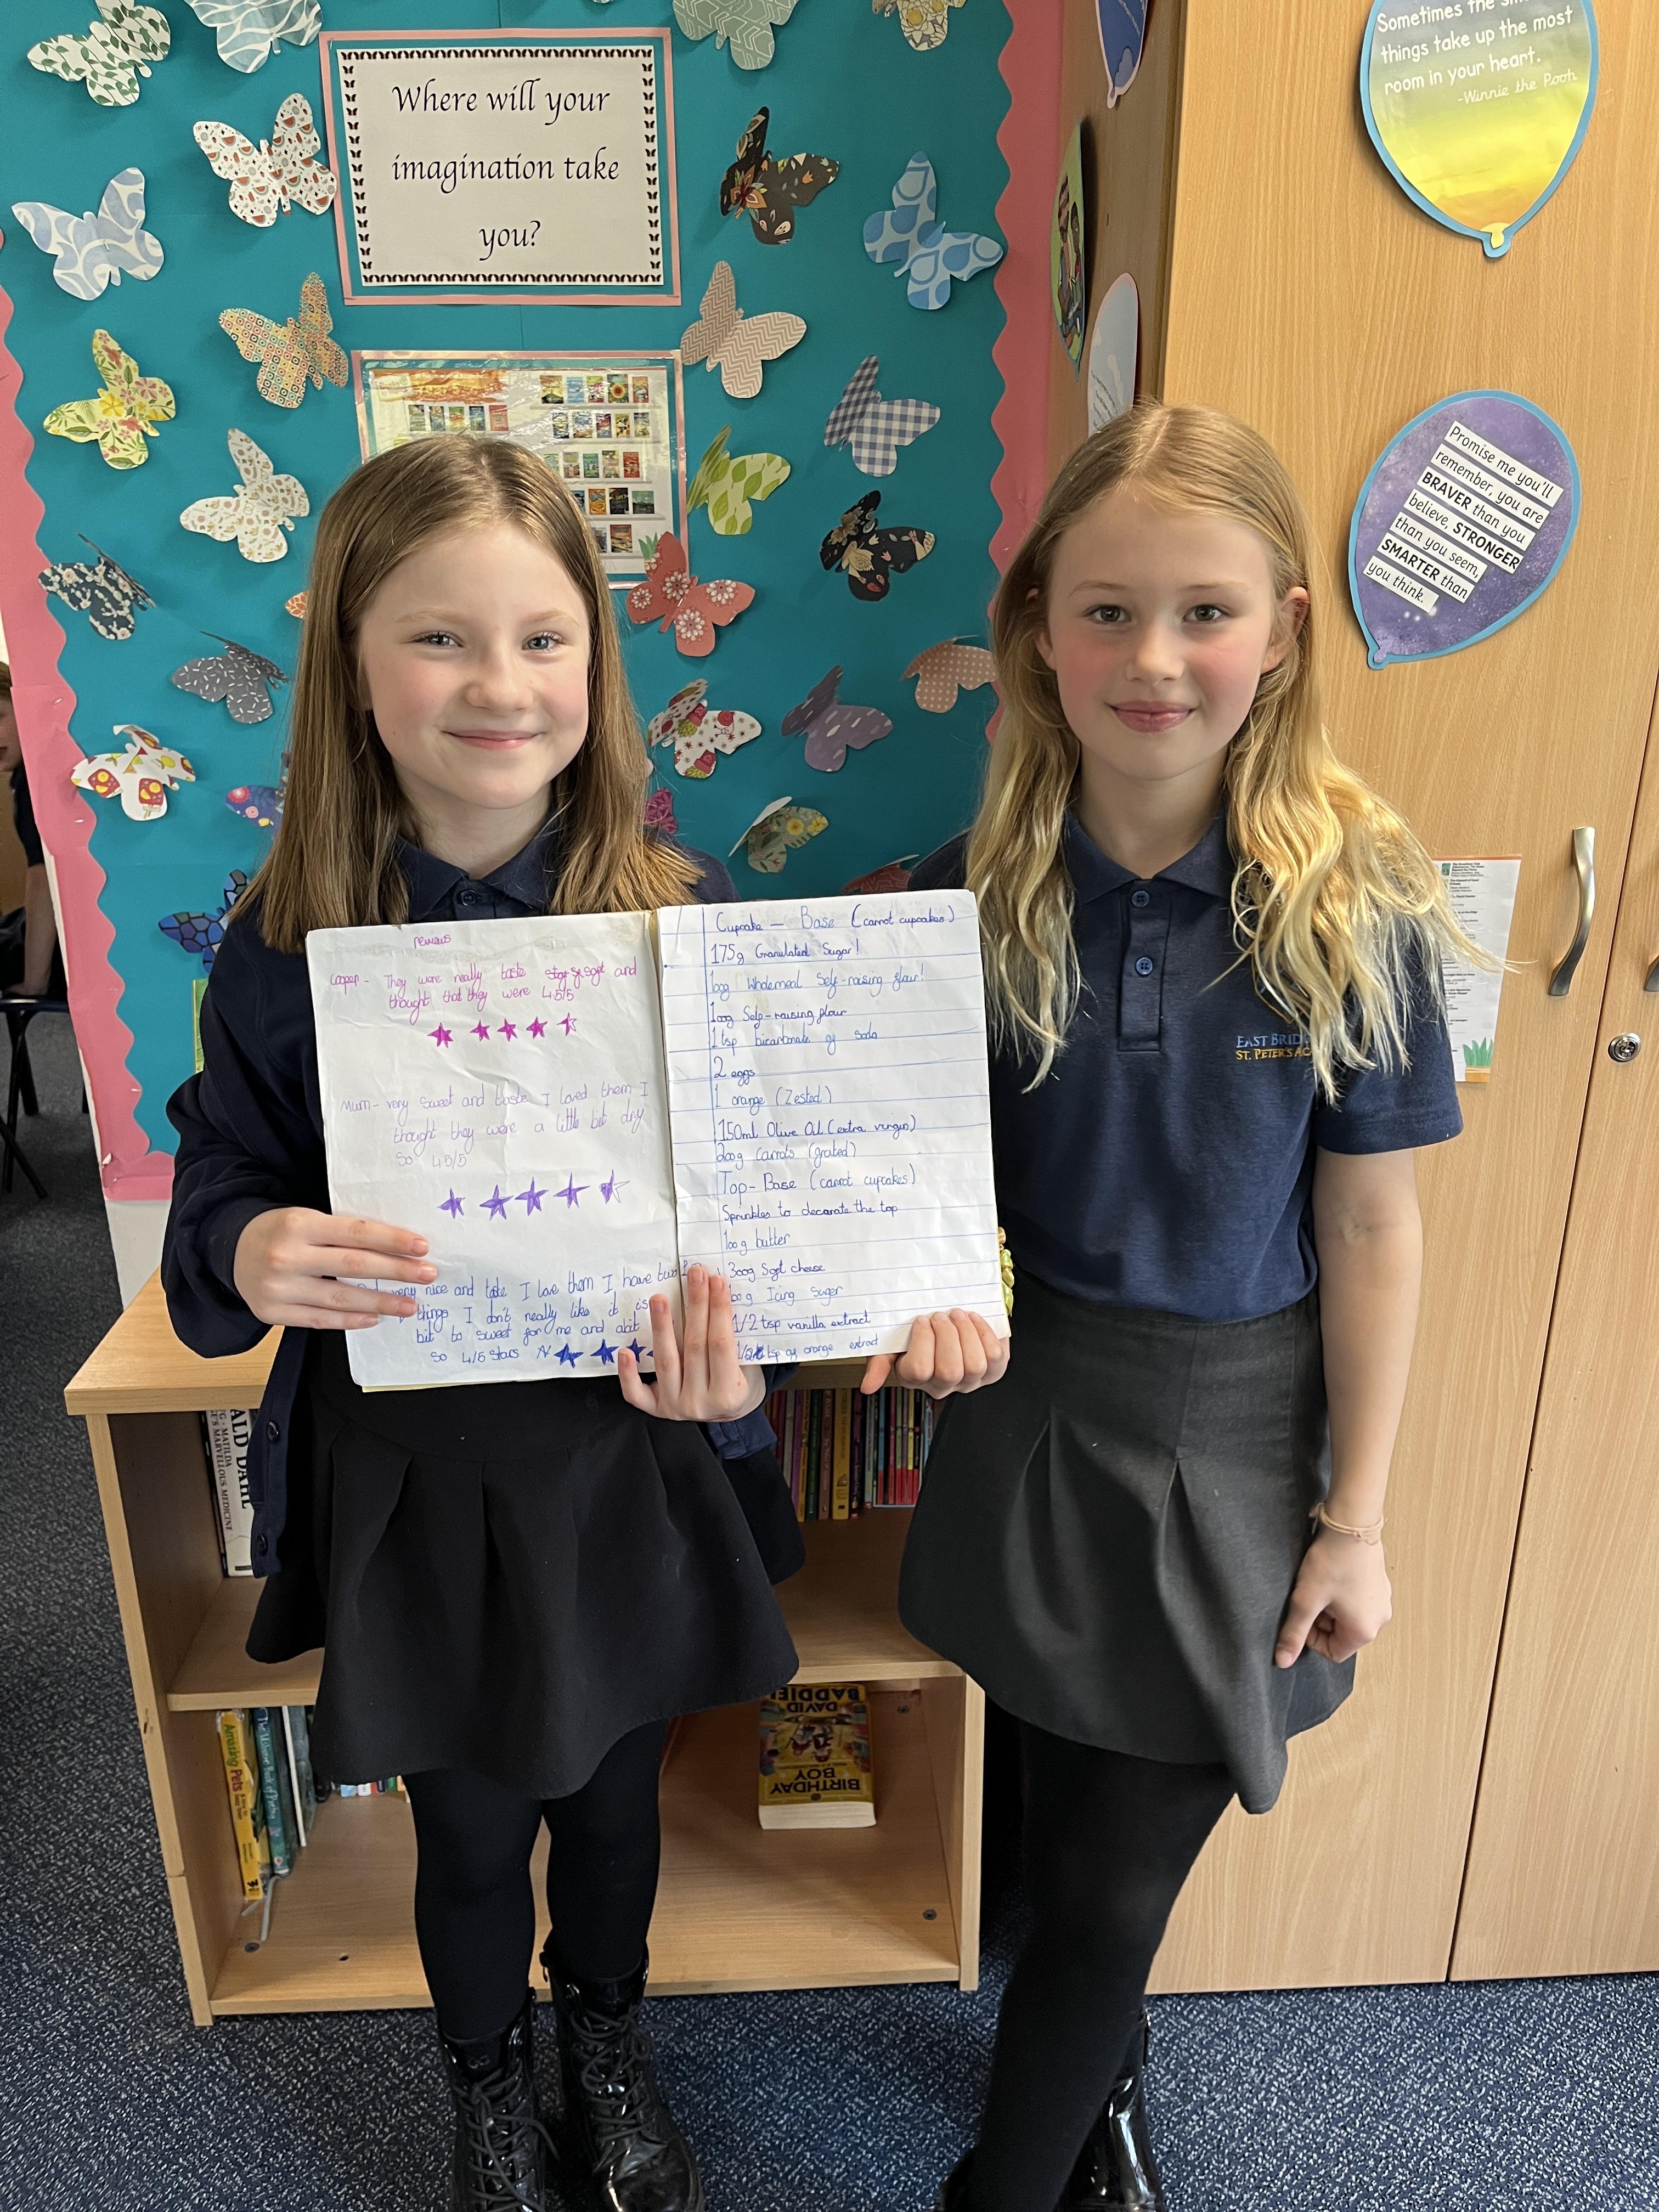 Where will your
imagination take
you?
Sometimes the
things take up the most
room in your heart.
-Winnie the Pooh
Promise me you'll
remember, you are
BRAVER than you
believe, STRONGER
than you seem,
SMARTER than
you think.
reviews
Cooper - They were really taste soft and
thought that they were 4.5/5
Mum - very sweet and taste I loved them I
thought they were a little bit dry
So 4.5/5
very nice and taste I love them I have two
things I don't really like it is
bit to sweet for me and
So 4/5 stars
Cupcake - Base (carrot cupcakes)
175g Granulated Sugar!
100g Wholemeal Self-raising flour!
100g Self-raising flour
1 tsp bicarbonate of soda
2 eggs
1 orange (Zested)
150ml Olive Oil (extra virgin)
200g carrots (grated)
Top - Base (carrot cupcakes)
Sprinkles to decorate the top
100g butter
300g Soft cheese
Icing Suger
1/2 tsp vanilla extract
1/2 tsp of orange extract
EAST BRID
ST. PETER'S AC
ALD DAHL
MATILDA
MARVELLOUS MEDICINE
Amazing Pets
DAVID
BADDIEL
BIRTHDAY
BOY